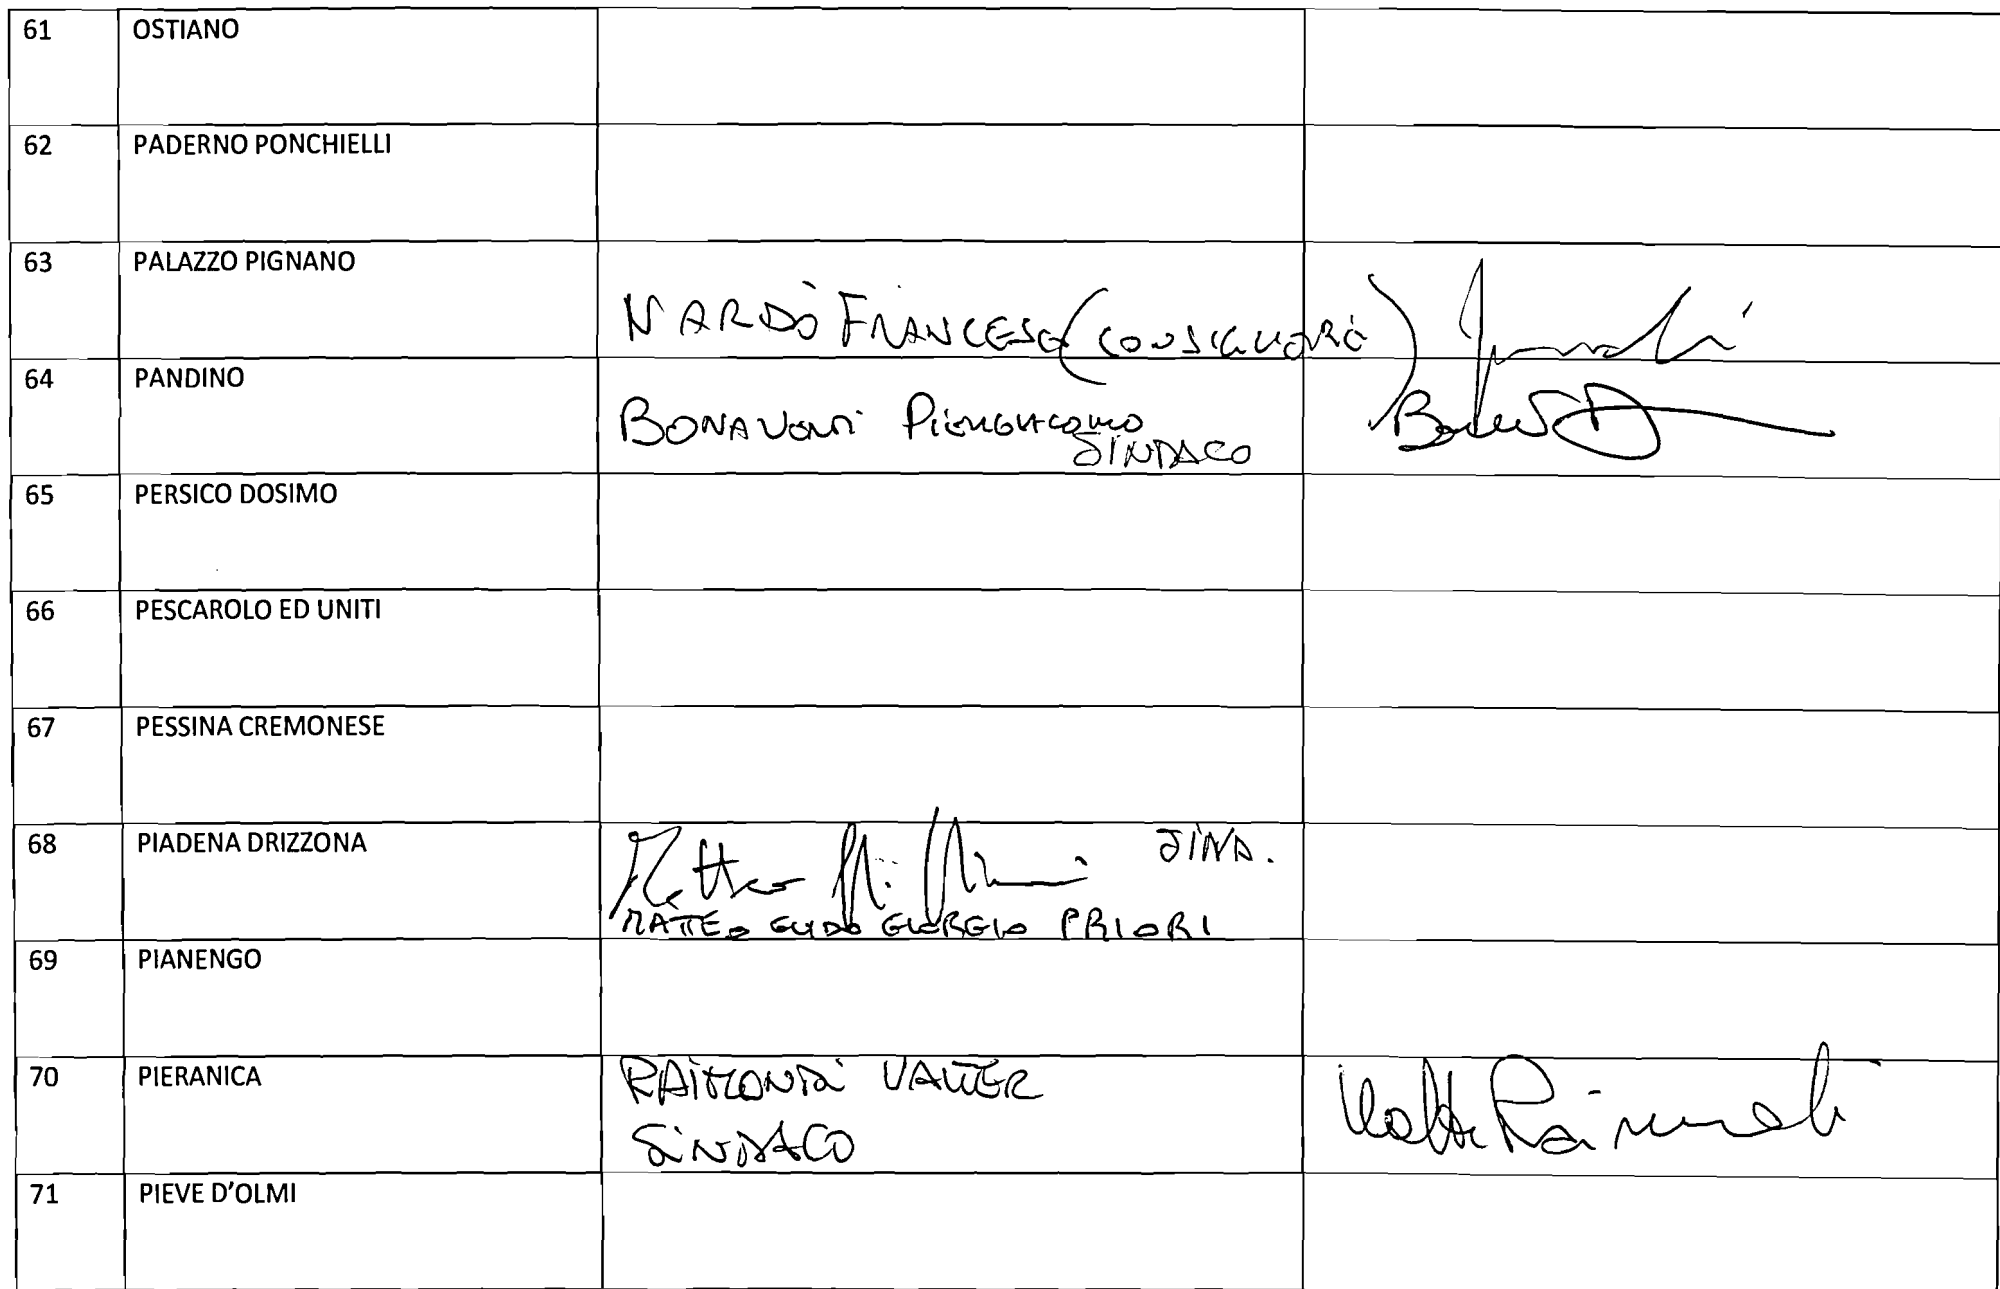 61 OSTIANO
62 PADERNO PONCHIELLI
63 PALAZZO PIGNANO
NARDÒ FRANCESCO (CONSIGLIERE)
64 PANDINO
BONAVENTI PIERGIACOMO
SINDACO
65 PERSICO DOSIMO
66 PESCAROLO ED UNITI
67 PESSINA CREMONESE
68 PIADENA DRIZZONA
SIND.
MATTEO GUIDO GIORGIO PRIORI
69 PIANENGO
70 PIERANICA
RAIMONDI VALTER
SINDACO
Valter Raimondi
71 PIEVE D'OLMI